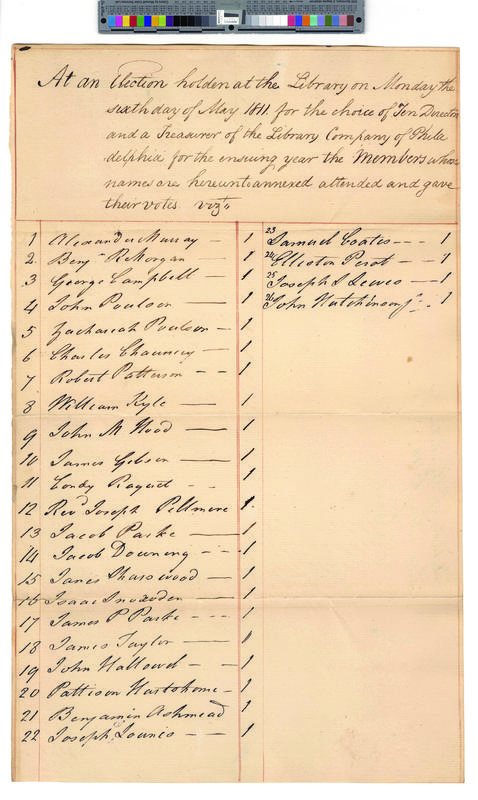 At an Election holden at the Library on Monday the
sixth day of May 1811. for the choice of Ten Directors
and a Treasurer of the Library Company of Phila
delphia for the ensuing year the Members whose
names are hereunto annexed attended and gave
their votes. vizt.
1 Alexander Murray — 1
2 Benjn R Morgan 1
3 George Campbell — 1
4 John Poulson — 1
5 Zachariah Poulson — 1
6 Charles Chauncey — 1
7 Robert Patterson - - 1
8 William Kyle — 1
9 John M Wood — 1
10 James Gibson — 1
11 Condy Raguet - - 1
12 Revd Joseph Pillmore 1
13 Jacob Parke — 1
14 Jacob Downing - - 1
15 James Sharswood — 1
16 Isaac Snowden — 1
17 James P Parke - - - 1
18 James Taylor — 1
19 John Hallowell - - 1
20 Pattison Hartshorne - 1
21 Benjamin Ashmead 1
22 Joseph Lownes - - 1
23 Samuel Coates - - - 1
24 Elliston Perot - - 1
25 Joseph S Lewis - - 1
26 John Hutchinson jr - - 1